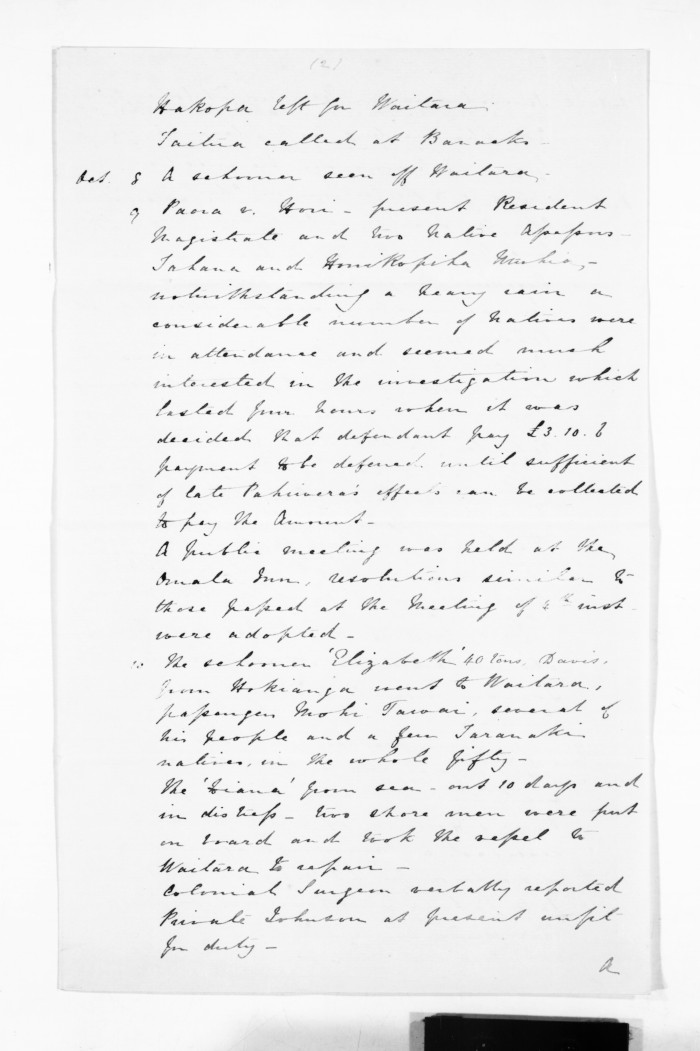 (2)
Hakopa left for Waitara.
Taitua called at Barracks.
Oct. 8 A schooner seen off Waitara.
9 Paora v. Hori - present Resident
Magistrate and two Native Assessors -
Tahana and Honikopiha -
notwithstanding a heavy rain a
considerable number of Natives were
in attendance and seemed much
interested in the investigation which
lasted four hours when it was
decided that defendant pay £3.10.6
payment to be deferred until sufficient
of late effects can be collected
to pay the Amount -
A public meeting was held at the
Omata Inn, resolutions similar to
those passed at the Meeting of 4th inst
were adopted -
10 The schooner 'Elizabeth' 40 tons, Davis,
from Hokianga went to Waitara,
passengers Mohi Tawai, several of
his people and a few Taranaki
natives, in the whole fifty -
The 'Diana' from sea - out 10 days and
in distress - two shore men were put
on board and took the vessel to
Waitara to repair -
Colonial Surgeon verbally reported
Private Johnson at present unfit
for duty -
A